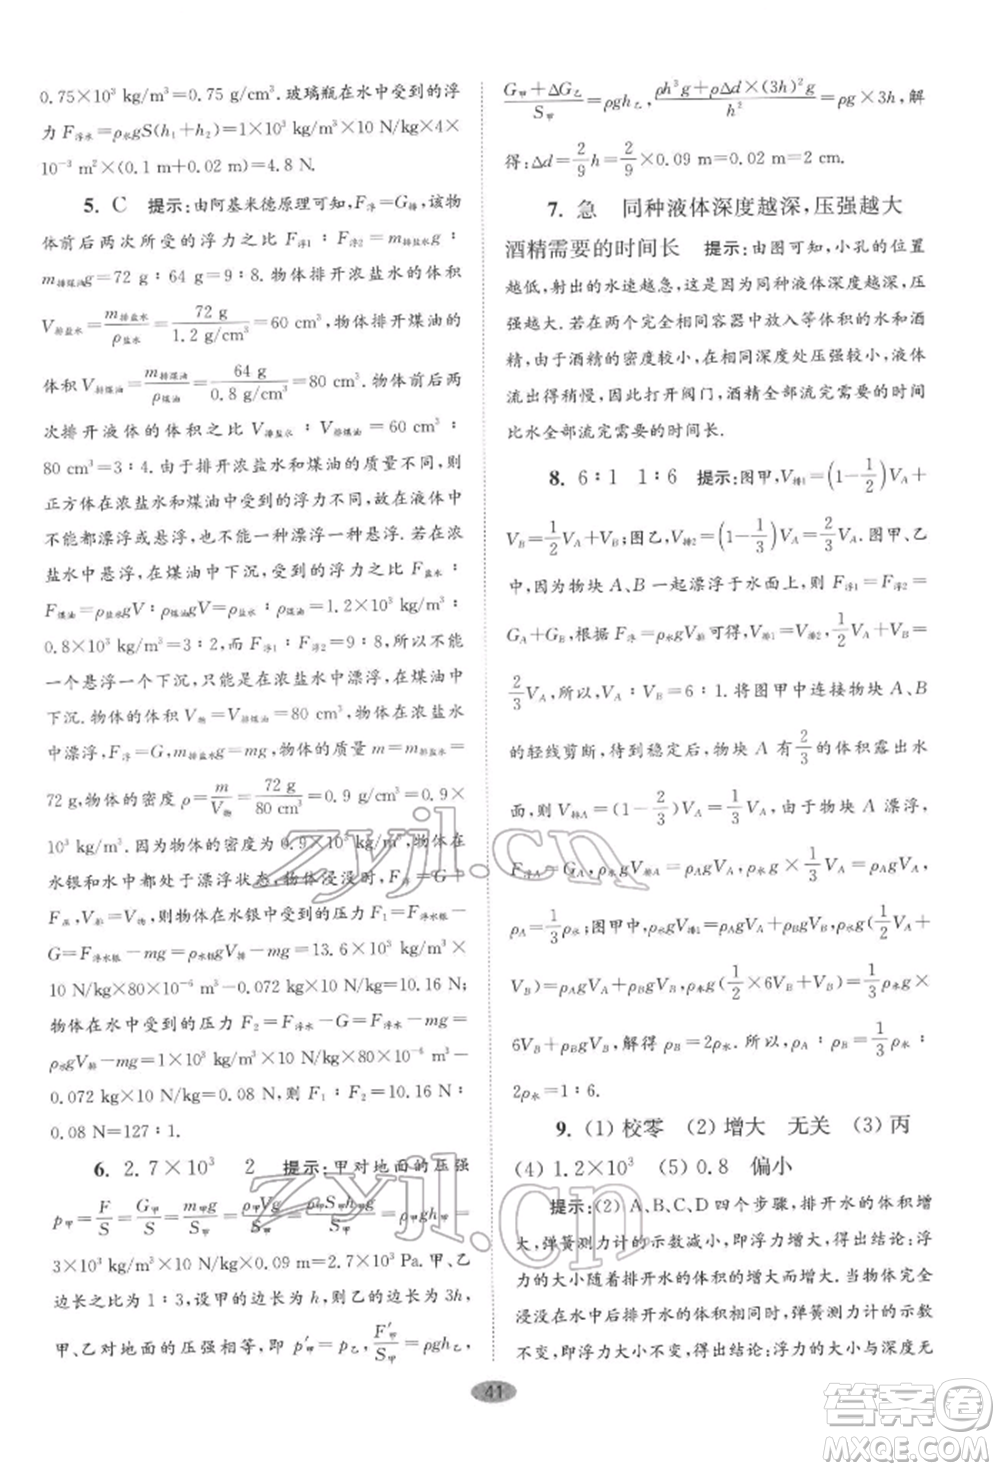 0.75×10³ kg/m³=0.75 g/cm³.玻璃瓶在水中受到的浮
力 F浮水=ρ水gS(h₁+h₂)=1×10³ kg/m³×10 N/kg×4×
10⁻³ m²×(0.1 m+0.02 m)=4.8 N.
5. C 提示:由阿基米德原理可知,F浮=G排,该物
体前后两次所受的浮力之比 F浮1∶F浮2=m排盐水g∶
m排煤油g=72 g∶64 g=9∶8.物体排开浓盐水的体积
V排盐水=m排盐水/ρ盐水=72 g/1.2 g/cm³=60 cm³,物体排开煤油的
体积 V排煤油=m排煤油/ρ煤油=64 g/0.8 g/cm³=80 cm³.物体前后两
次排开液体的体积之比 V排盐水∶V排煤油=60 cm³∶
80 cm³=3∶4.由于排开浓盐水和煤油的质量不同,
正方体在浓盐水和煤油中受到的浮力不同,故在液体中
不能都漂浮或悬浮,也不能一个漂浮一个悬浮.若在浓
盐水中悬浮,在煤油中下沉,则两次浮力之比 F盐水∶
F煤油=ρ盐水gV∶ρ煤油gV=ρ盐水∶ρ煤油=1.2×10³∶
0.8×10³=3∶2,而 F浮1∶F浮2=9∶8,所以不能
一个悬浮一个下沉.只能在浓盐水中漂浮,在煤油中
下沉.物体的体积 V物=V排煤油=80 cm³,在浓盐水
中漂浮,F浮=G,m排盐水g=mg,物体的质量 m=m排盐水=
72 g,物体的密度 ρ=m/V物=72 g/80 cm³=0.9 g/cm³=0.9×
10³ kg/m³.因为物体的密度为 0.9×10³ kg/m³,在
水银和水中都处于漂浮状态,物体浸没时,F浮=G+
F压,V排=V物,物体在水银中受到的压力 F₁=F浮水银-
G=F浮水银-mg=ρ水银gV排-mg=13.6×10³ kg/m³×
10 N/kg×80×10⁻⁶ m³-0.072 kg×10 N/kg=10.16 N;
物体在水中受到的压力 F₂=F浮水-G=F浮水-mg=
ρ水gV排-mg=1×10³ kg/m³×10 N/kg×80×10⁻⁶ m³-
0.072 kg×10 N/kg=0.08 N,则 F₁∶F₂=10.16 N∶
0.08 N=127∶1.
6. 2.7×10³ 2 提示:甲对地面的压强
p甲=F/S=G甲/S=m甲g/S甲=ρ甲Vg/S甲=ρ甲S甲h甲g/S甲=ρ甲gh甲=
3×10³ kg/m³×10 N/kg×0.09 m=2.7×10³ Pa.甲、乙
边长之比为 1∶3,设甲的边长为 h,则乙的边长为 3h,
甲、乙对地面的压强相等,即 p′甲=p乙,F′甲/S甲=ρgh乙,
G甲+ΔG乙/S甲=ρgh乙,ρh³g+ρΔd×(3h)²g/h²=ρg×3h,解
得:Δd=2/9h=2/9×0.09 m=0.02 m=2 cm.
7. 急 同种液体深度越深,压强越大
酒精需要的时间长 提示:由图可知,小孔的位置
越低,射出的水速越急,这是因为液体深度越深,压
强越大.若在两个完全相同容器中放入等体积的水和酒
精,由于酒精的密度较小,在相同深处压强较小,液体
流出的速度较小,因此打开阀门,酒精全部流完的时间
比水全部流完需要的时间长.
8. 6∶1 1∶6 提示:图甲,V排1=(1-1/2)V_A+
V_B=1/2V_A+V_B;图乙,V排2=(1-1/3)V_A=2/3V_A.图甲、乙
中,因为物块 A、B 一起漂浮于水面上,则 F浮1=F浮2=
G_A+G_B,根据 F浮=ρ水gV排可得,V排1=V排2,1/2V_A+V_B=
2/3V_A,所以,V_A∶V_B=6∶1.将图甲中连接物块 A、B
的轻线剪断,待到稳定后,物块 A 有2/3的体积露出水
面,则 V排A=(1-2/3)V_A=1/3V_A,由于物块 A 漂浮,
F浮A=G_A,ρ水gV排A=ρ_AgV_A,ρ水g×1/3V_A=ρ_AgV_A,
ρ_A=1/3ρ水;图甲中,ρ水gV排1=ρ_AgV_A+ρ_BgV_B,ρ水g(1/2V_A+
V_B)=ρ_AgV_A+ρ_BgV_B,ρ水g(1/2×6V_B+V_B)=1/3ρ水g×
6V_B+ρ_BgV_B,解得 ρ_B=2ρ水.所以,ρ_A∶ρ_B=1/3ρ水∶
2ρ水=1∶6.
9. (1) 校零 (2) 增大 无关 (3) 丙
(4) 1.2×10³ (5) 0.8 偏小
提示:(2) A、B、C、D 四个步骤,排开水的体积增
大,弹簧测力计的示数减小,即浮力增大,得出结论:浮
力的大小随着排开水的体积的增大而增大.当物体完全
浸没在水中后排开水的体积相同,弹簧测力计的示数
不变,即浮力大小不变,得出结论:浮力大小与深度无
41
zyjl.cn
zyjl.cn
答案圈
MXQE.COM